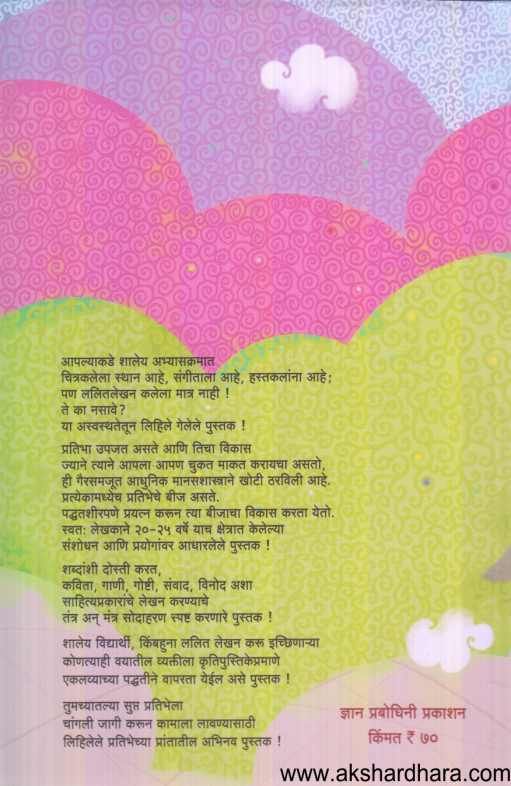 आपल्याकडे शालेय अभ्यासक्रमात
चित्रकलेला स्थान आहे, संगीताला आहे, हस्तकलांना आहे;
पण ललितलेखन कलेला मात्र नाही !
ते का नसावे?
या अस्वस्थतेतून लिहिले गेलेले पुस्तक !
प्रतिभा उपजत असते आणि तिचा विकास
ज्याने त्याने आपला आपण चुकत माकत करायचा असतो,
ही गैरसमजूत आधुनिक मानसशास्त्राने खोटी ठरविली आहे.
प्रत्येकामध्येच प्रतिभेचे बीज असते.
पद्धतशीरपणे प्रयत्न करून त्या बीजाचा विकास करता येतो.
स्वत: लेखकाने २०-२५ वर्षे याच क्षेत्रात केलेल्या
संशोधन आणि प्रयोगांवर आधारलेले पुस्तक !
शब्दांशी दोस्ती करत,
कविता, गाणी, गोष्टी, संवाद, विनोद अशा
साहित्यप्रकारांचे लेखन करण्याचे
तंत्र अन् मंत्र सोदाहरण स्पष्ट करणारे पुस्तक !
शालेय विद्यार्थी, किंबहुना ललित लेखन करू इच्छिणाऱ्या
कोणत्याही वयातील व्यक्तीला कृतिपुस्तिकेप्रमाणे
एकलव्याच्या पद्धतीने वापरता येईल असे पुस्तक !
तुमच्यातल्या सुप्त प्रतिभेला
चांगली जागी करून कामाला लावण्यासाठी
लिहिलेले प्रतिभेच्या प्रांतातील अभिनव पुस्तक !
ज्ञान प्रबोधिनी प्रकाशन
किंमत ₹ ७०
www.akshardhara.com